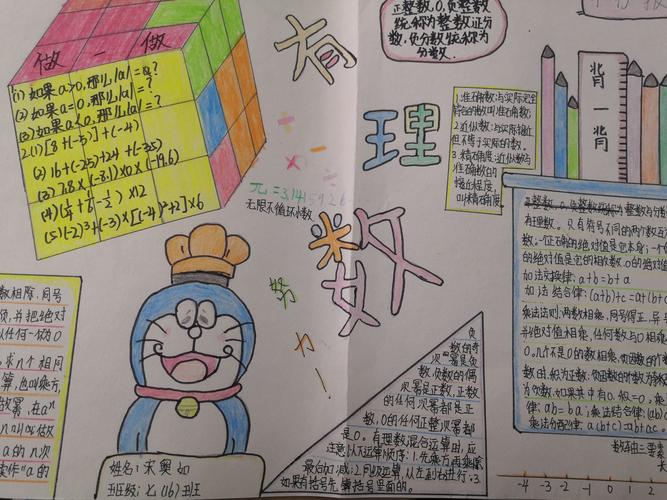 做一做
(1) 如果a>0,那么|a|=a?
(2) 如果a=0,那么|a|=?
(3) 如果a<0,那么|a|=?
2.(1)[8+(-5)]+(-4)
(2) 16+(-25)+24+(-35)
(3) 7.8×(-3.1)×0×(-19.6)
×12
(5)(-2)³+(-3)×[(-4)²+2]×6
有
理
数
正整数,0,负整数
统称为整数,正分
数,负分数统称为
分数.
π=3.1415926
无限不循环小数
努
力
!
1.准确数:与实际完全
符合的数叫准确数;
2.近似数:与实际接近
但不等于实际的数.
3.精确度:近似数与
准确数的
接近程度,
叫精确度.
背
一
背
有理数.只有符号不同的两个数互为
数,一个正确的绝对值是它本身;一个
的绝对值是它的相反数.0的绝对值
加法交换律:a+b=b+a
加法结合律:(a+b)+c=a+(b+
乘法法则:两数相乘,同号得正,异号
并把绝对值相乘,任何数与0相乘
0,几个不是0的数相乘,负因数的个数
数时,积为正数;负因数的个数为奇数
为负数,如果其中有0,积=0.乘
律:ab=ba;乘法结合律:(ab)
乘法分配律:a(b+c)=ab+ac
数轴三要素
-4 -3 -2 -1 0 1 2
数相除,同号
负,并把绝对
以任何一切为0
求n个相同
算,也叫乘方,
做幂,在aⁿ
n叫做
a的n次
读作"a的
姓名:宋奥如
班级:七(16)班
负
数的奇
次幂是负
数,负数的偶
次幂是正数,正数
的任何次幂都是正
数,0的任何正整次幂都
是0.有理数混合运算时,应
注意以下运算顺序:1.先乘方,再乘除,
最后加减;2.同级运算,从左到右进行;3.
如果有括号,先算括号里面的.